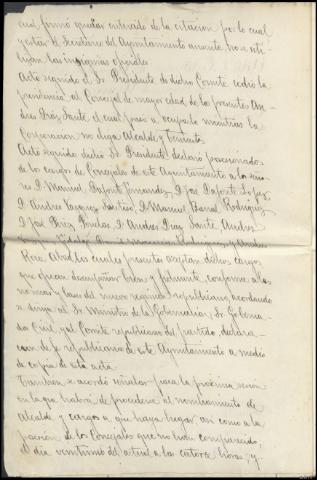 cual firmó quedar enterado de la citacion por lo cual
y estar el Secretario del Ayuntamiento ausente, no se
las insignias
Acto seguido el Sr Presidente de dicho Comite cedió la
presidencia al Concejal de mayor edad de los presentes An-
dres Prég Sante el cual pasó a ocuparlo mientras la
Corporacion no elija Alcalde y Teniente.
Acto seguido dicho Sr Presidente declaró posesionados
de los cargos de Concejales de este Ayuntamiento a los seño-
res D. Manuel Fernandez, D. José Lopez,
D. Andres Vazquez D. Manuel Rodriguez,
D. José Andres Sante Andres
y Andres
los cuales presentes aceptan dichos cargos
que ofrecen desempeñar bien y fielmente, conforme a las
normas y leyes del nuevo regimen republicano, acordando
se dirija al Sr Ministro de la Gobernación, Sr Goberna-
dor Civil, y al Comité republicano del partido, declara-
cion de republicano de este Ayuntamiento a medio
de copia de esta acta.
Tambien se acordó señalar para la próxima sesion
en la que habrá de procederse al nombramiento de
Alcalde y cargos a que haya lugar, asi como a la
posesion de los Concejales que no han comparecido,
el dia veintiuno del actual a las catorce horas, y